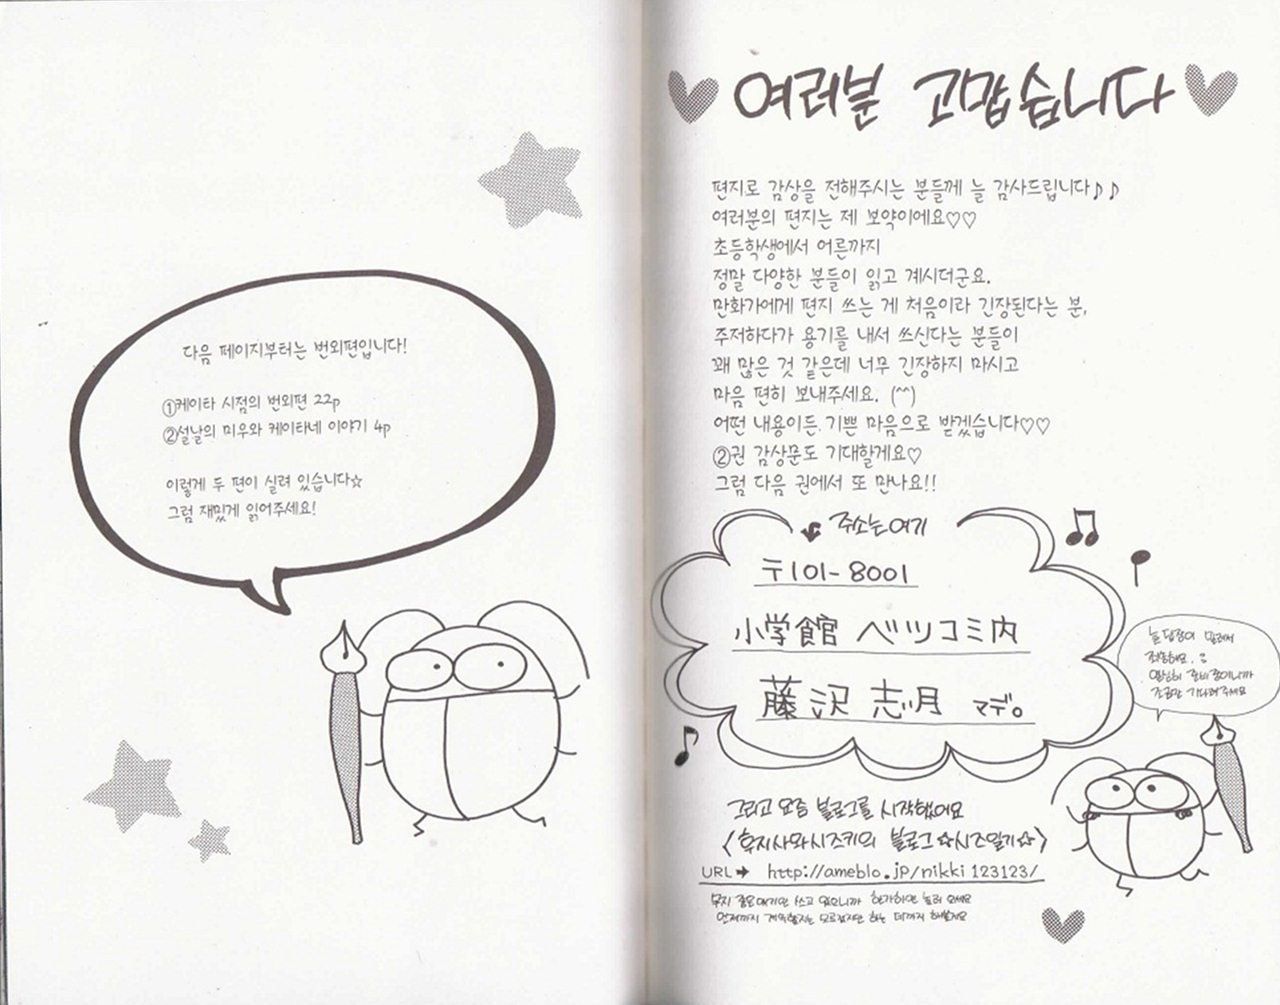 다음 페이지부터는 번외편입니다!
①케이타 시점의 번외편 22p
②설날의 미우와 케이타네 이야기 4p
이렇게 두 편이 실려 있습니다☆
그럼 재밌게 읽어주세요!
여러분 고맙습니다
편지로 감상을 전해주시는 분들께 늘 감사드립니다♪♪
여러분의 편지는 제 보약이에요♡♡
초등학생에서 어른까지
정말 다양한 분들이 읽고 계시더군요.
만화가에게 편지 쓰는 게 처음이라 긴장된다는 분,
주저하다가 용기를 내서 쓰신다는 분들이
꽤 많은 것 같은데 너무 긴장하지 마시고
마음 편히 보내주세요. (^^)
어떤 내용이든 기쁜 마음으로 받겠습니다♡♡
②권 감상문도 기대할게요♡
그럼 다음 권에서 또 만나요!!
주소는 여기
〒101-8001
小学館 ベツコミ内
藤沢 志月 マデ。
늘 답장이 밀려서
죄송해요.
열심히 준비 중이니까
조금만 기다려주세요
그리고 요즘 블로그를 시작했어요
<후지사와시즈키의 블로그☆시즈일기☆>
URL➡ http://ameblo.jp/nikki123123/
무지 좁은 얘기만 쓰고 있으니까 한가하면 놀러 오세요
언제까지 계속할지는 모르겠지만 하는 데까지 해볼게요